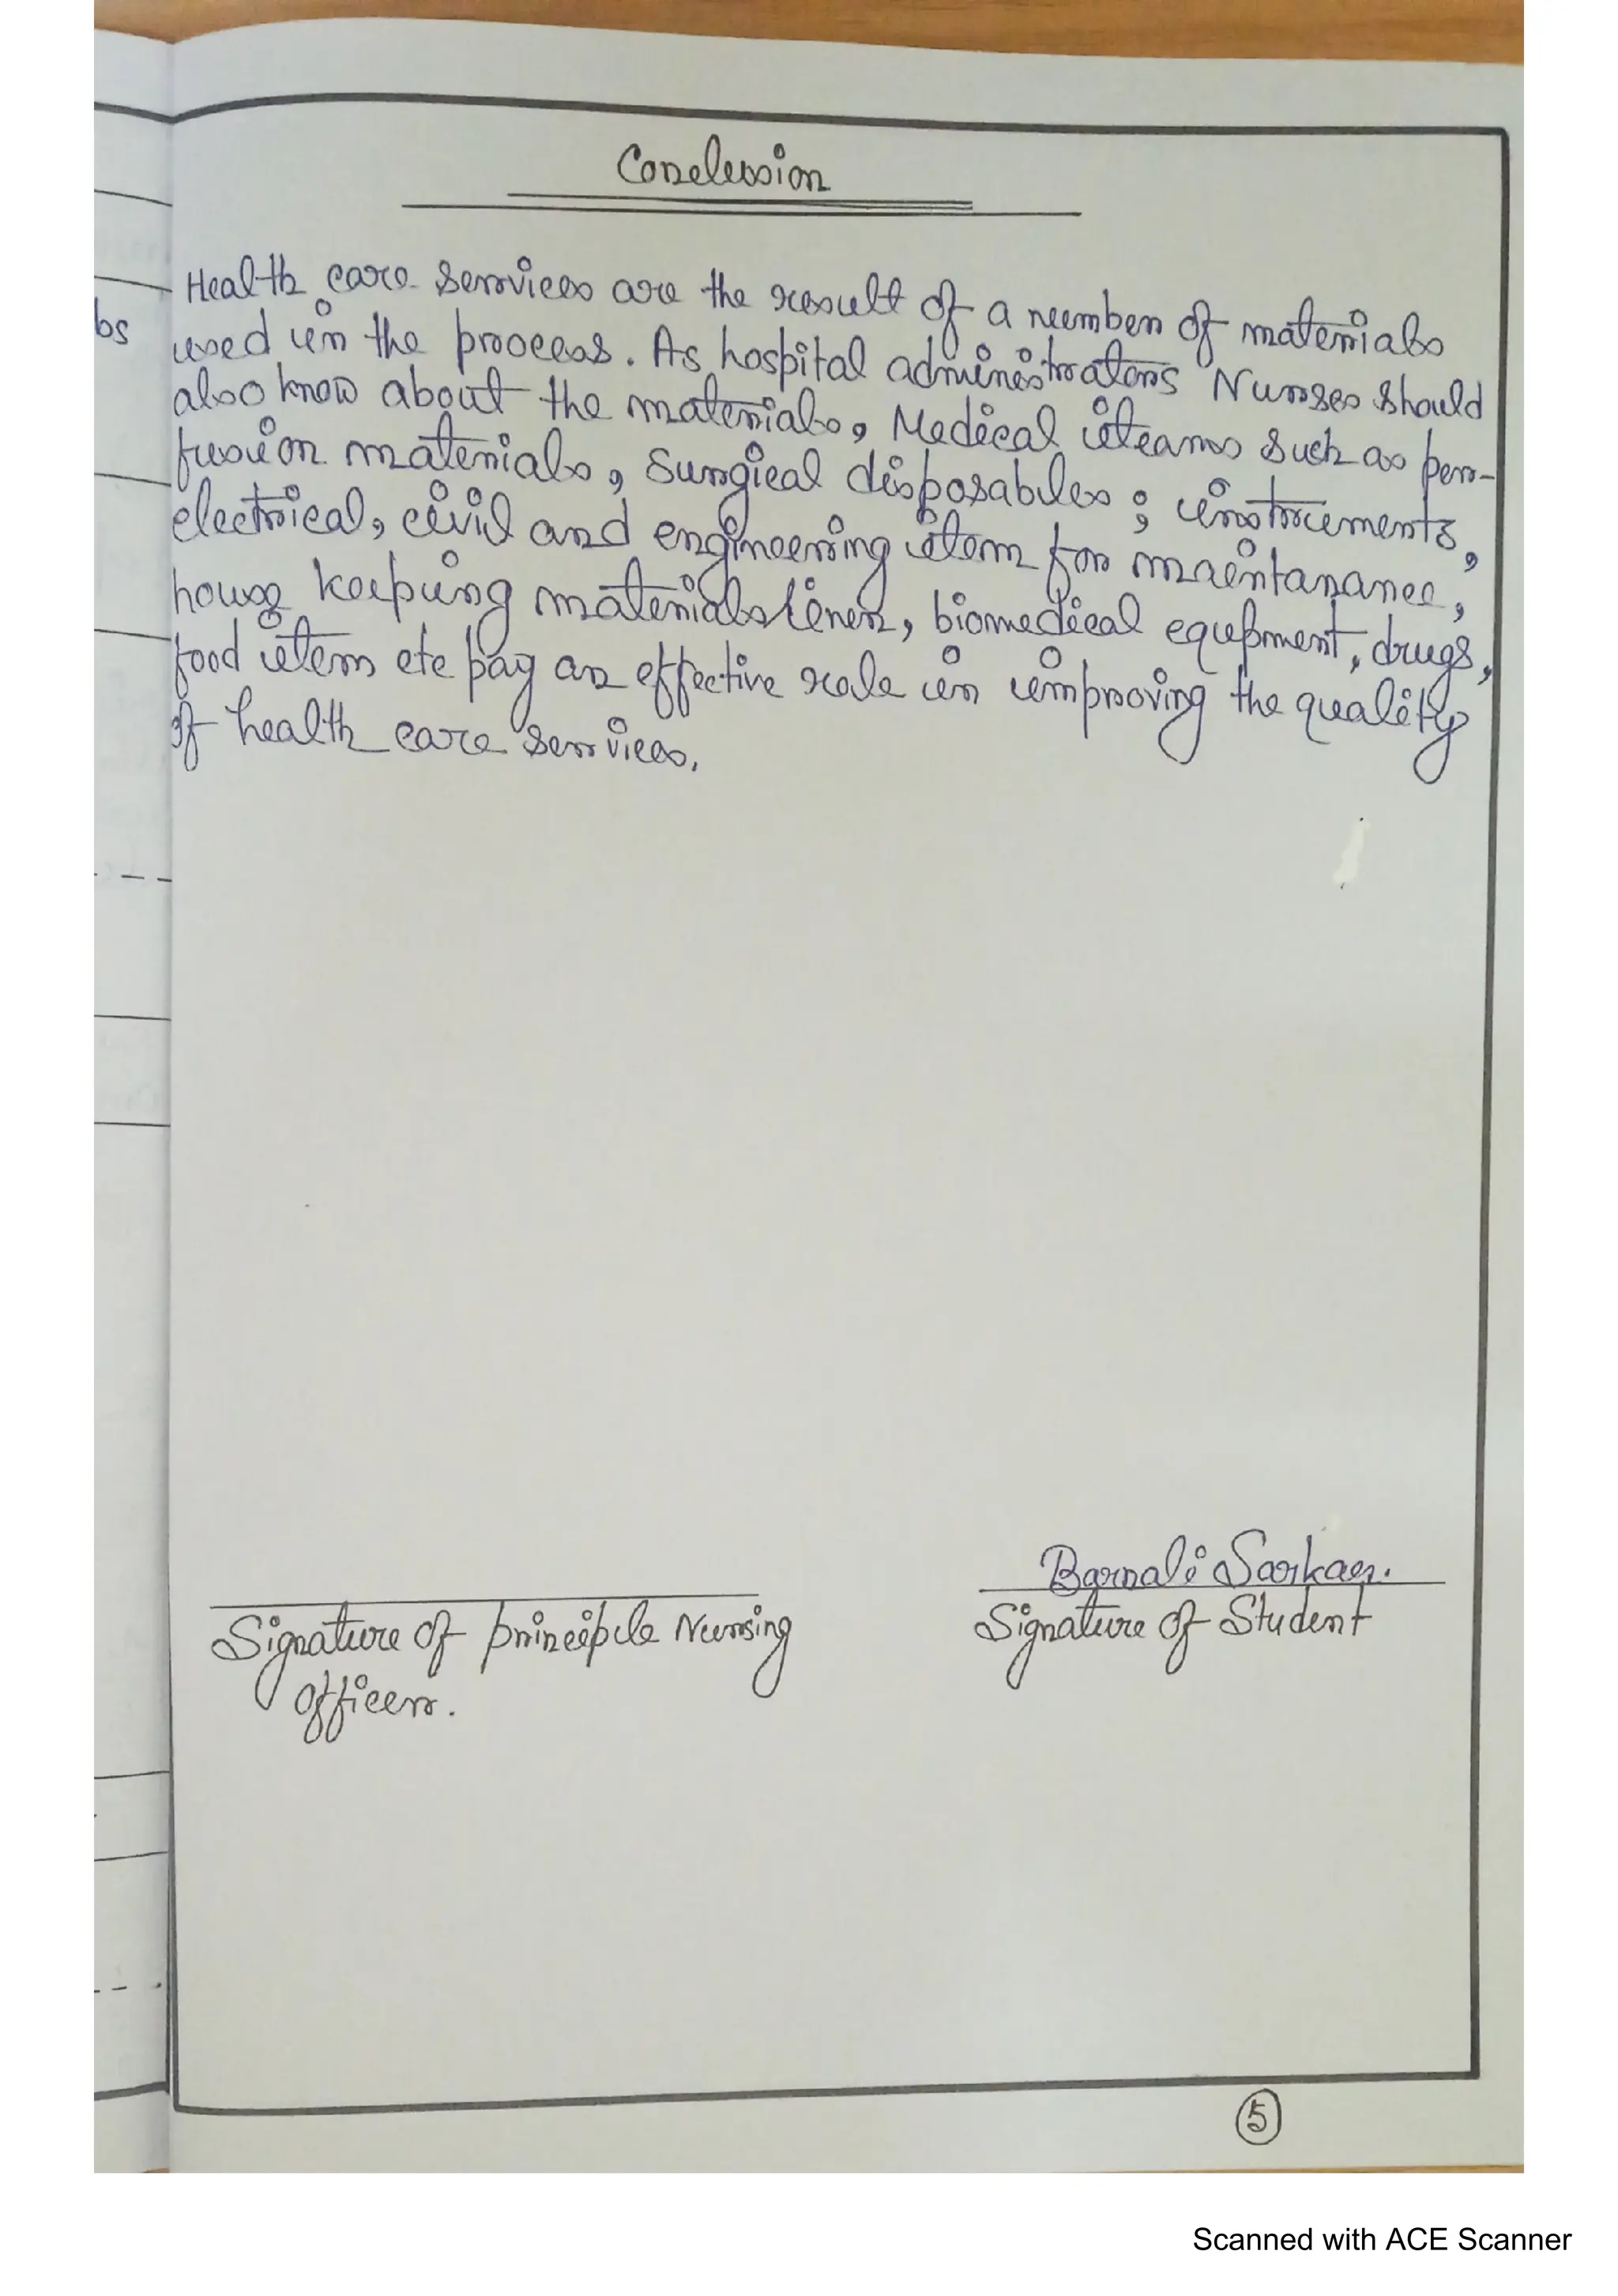 Conclussion
Health care services are the result of a number of materials
used in the process. As hospital administrators Nurses should
also know about the materials, Medical iteams such as per-
fusion materials, Surgical disposables; instrucements,
electrical, civil and engineering item for maintanance,
house keeping materials linen, biomedical equpment, drugs,
food item etc pay an effective role in improving the quality
of health care services.
bs
Barnali Sarkar.
Signature of principle Nursing
Signature of Student
officer.
5
Scanned with ACE Scanner